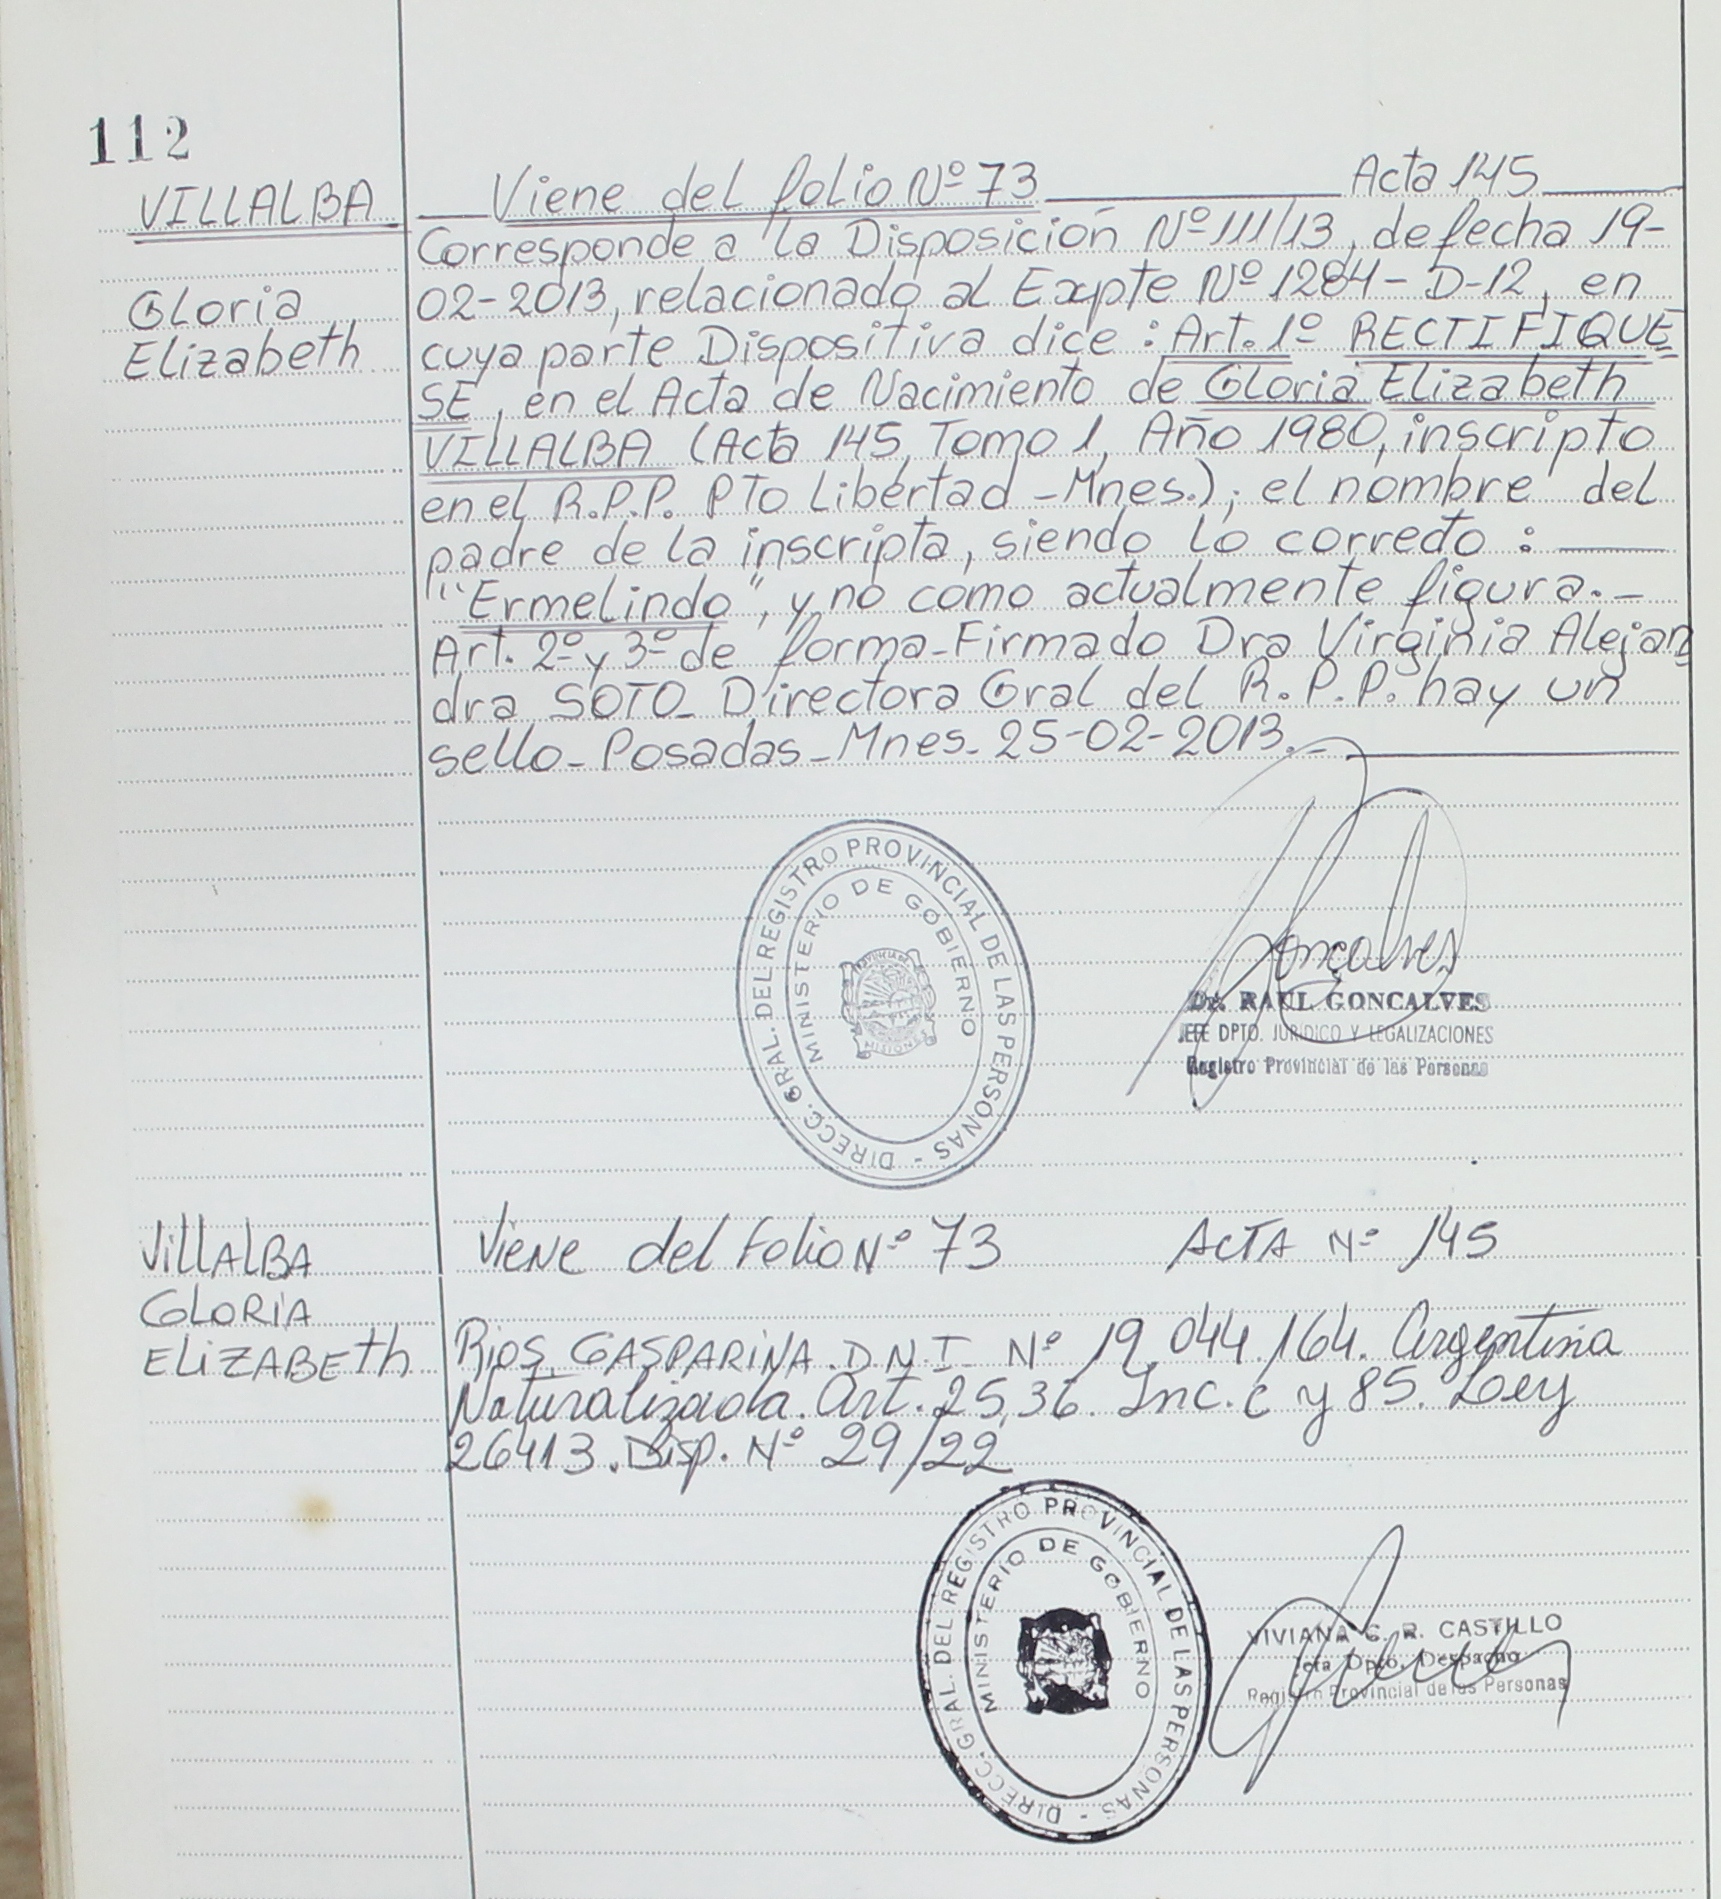 112
VILLALBA
Gloria
Elizabeth
Viene del folio Nº 73 Acta 145
Corresponde a la Disposición Nº 111/13, de fecha 19-
02-2013, relacionado al Expte Nº 1284-D-12, en
cuya parte Dispositiva dice: Art. 1º RECTIFIQUE
SE, en el Acta de Nacimiento de Gloria Elizabeth
VILLALBA (Acta 145, Tomo 1, Año 1980, inscripto
en el R.P.P. PTo Libertad - Mnes.); el nombre del
padre de la inscripta, siendo lo correcto:
"Ermelindo", y no como actualmente figura.-
Art. 2º y 3º de forma - Firmado Dra Virginia Alejan
dra SOTO - Directora Gral del R.P.P. hay un
sello - Posadas - Mnes - 25-02-2013.-
DIRECC. GRAL. DEL REGISTRO PROVINCIAL DE LAS PERSONAS -
MINISTERIO DE GOBIERNO
PROVINCIA DE
MISIONES
Goncalves
Dr. RAUL GONCALVES
JEFE DPTO. JURIDICO Y LEGALIZACIONES
Registro Provincial de las Personas
VillALBA
GLORIA
ELIZABETh
Viene del Folio Nº 73 ACTA Nº 145
Rios, GASPARINA. D.N.I Nº 19.044.164. Argentina
Naturalizada. Art. 25, 36. Inc. c y 85. Ley
26413. Disp. Nº 29/22
DIRECC. GRAL. DEL REGISTRO PROVINCIAL DE LAS PERSONAS -
MINISTERIO DE GOBIERNO
VIVIANA C. R. CASTILLO
Jefa Dpto. Despacho
Registro Provincial de las Personas